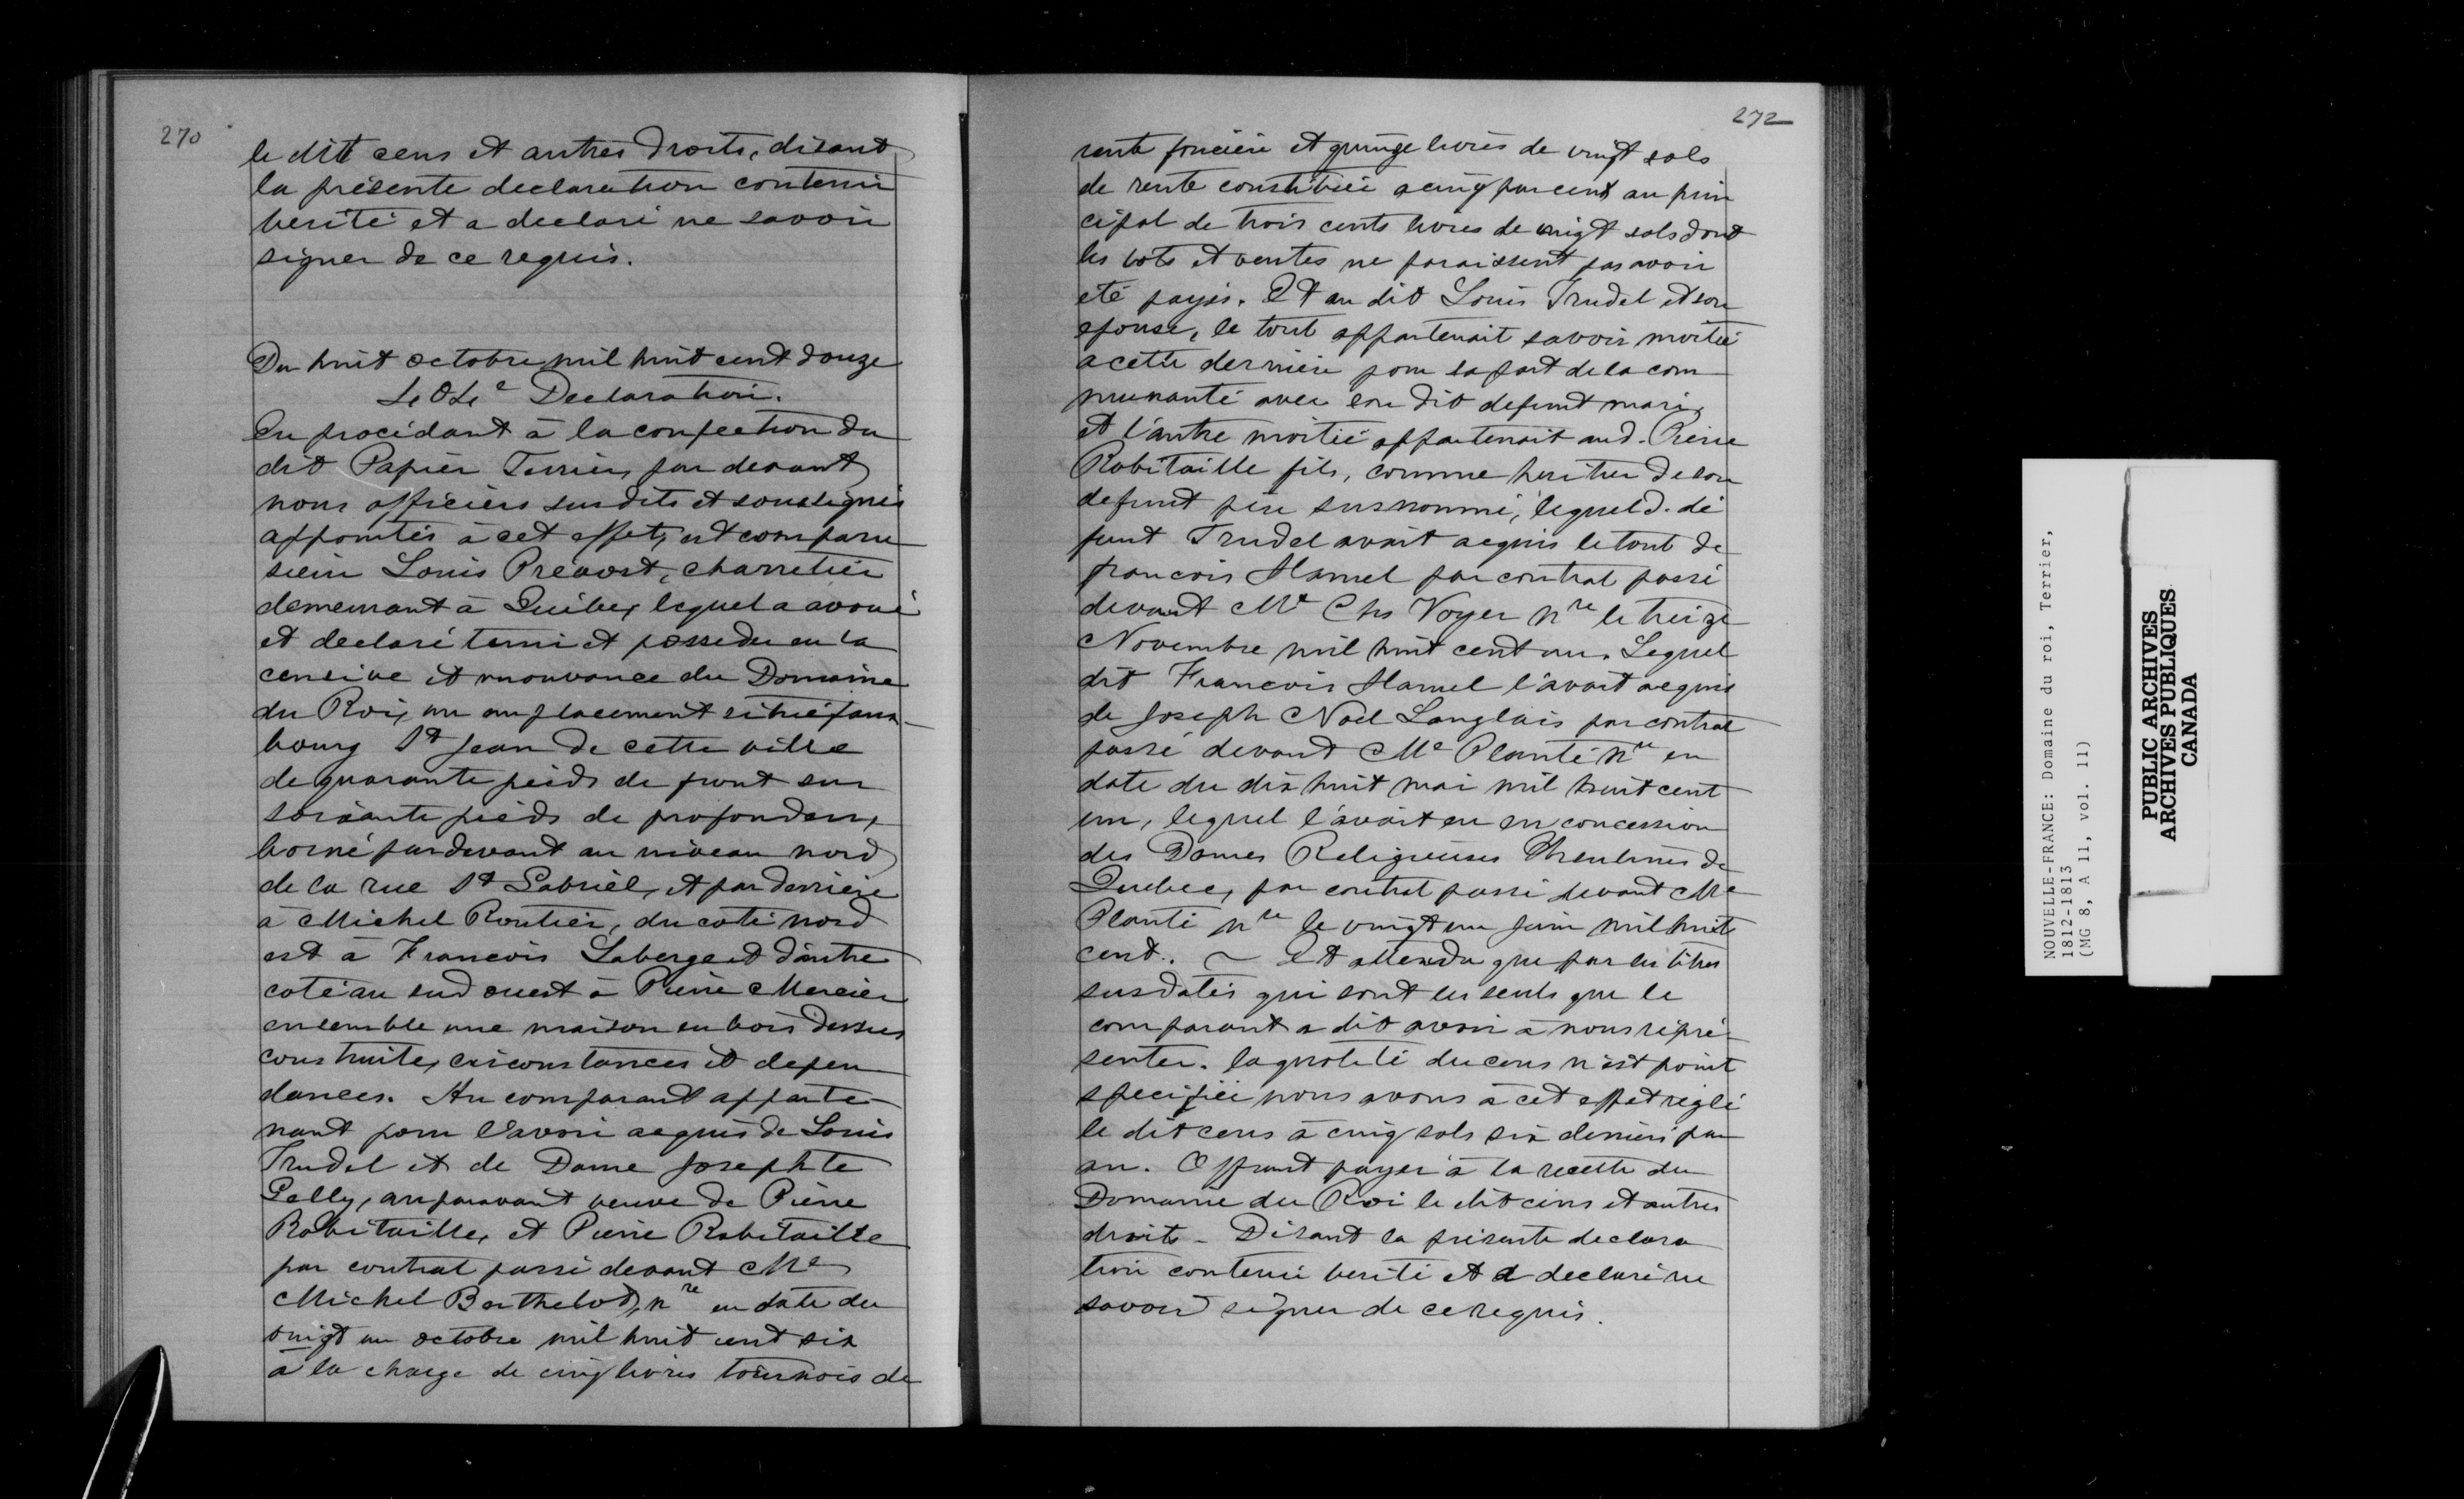 270
le dit cens et autres droits, disant
la présente declaration contenir
verité et a declaré ne savoir
signer de ce requis.
Du huit octobre mil huit cent douze
Declaration.
En procédant à la confection du
dit Papier Terrier, par devant
nous officiers susdits et soussignés
appointés à cet effet, est comparu
sieur Louis Prévost, charretier
demeurant à Québec, lequel a avoué
et declaré tenir et posseder en la
censive et mouvance du Domaine
du Roi, un emplacement situé faux
bourg St Jean de cette ville
de quarante pieds de front sur
soixante pieds de profondeur,
borné pardevant au niveau nord
de la rue St Gabriel, et par derrière
à Michel Routier, du coté nord
est à Francois Laberge et d'autre
coté au sud ouest à Pierre Mercier
ensemble une maison en bois dessus
construite, circonstances et depen
dances. Au comparant apparte-
nant pour l'avoir acquis de Louis
Trudel et de Dame Josephte
Pelly, auparavant veuve de Pierre
Robitaille, et Pierre Robitaille
par contrat passé devant Me
Michel Berthelot, nre en date du
vingt un octobre mil huit cent six
à la charge de cinq livres tournois de
272
rente foncière et quinze livres de vingt sols
de rente constituée a cinq par cent au prin
cipal de trois cents livres de vingt sols dont
les lots et ventes ne paraissent pas avoir
eté payés. Et au dit Louis Trudel et son
epouse, le tout appartenait savoir moitié
a cette dernière pour sa part de la com
munauté avec son dit defunt mari,
et l'autre moitié appartenait aud. Pierre
Robitaille fils, comme heritier de son
defunt père susnommé, lequel d. dé
funt Trudel avait acquis le tout de
francois Hamel par contrat passé
devant Me Chs Voyer nre le treize
Novembre mil huit cent un. Lequel
dit Francois Hamel l'avait acquis
de Joseph Noel Langlais par contrat
passé devant Me Planté nre en
date du dix huit mai mil huit cent
un, lequel l'avait eu en concession
des Dames Religieuses Ursulines de
Quebec, par contrat passé devant Me
Planté nre le vingt un juin mil huit
cent. ~ Et attendu que par les titres
susdatés qui sont les seuls que le
comparant a dit avoir à nous répré-
senter. la quotité du cens n'est point
specifiée nous avons à cet effet réglé
le dit cens à cinq sols six deniers par
an. Offrant payer à la recette du
Domaine du Roi le dit cens et autres
droits - Disant la présente declara
tion contenir verité et a declaré ne
savoir signer de ce requis.
NOUVELLE-FRANCE: Domaine du roi, Terrier,
1812-1813
(MG 8, A 11, vol. 11)
PUBLIC ARCHIVES
ARCHIVES PUBLIQUES
CANADA